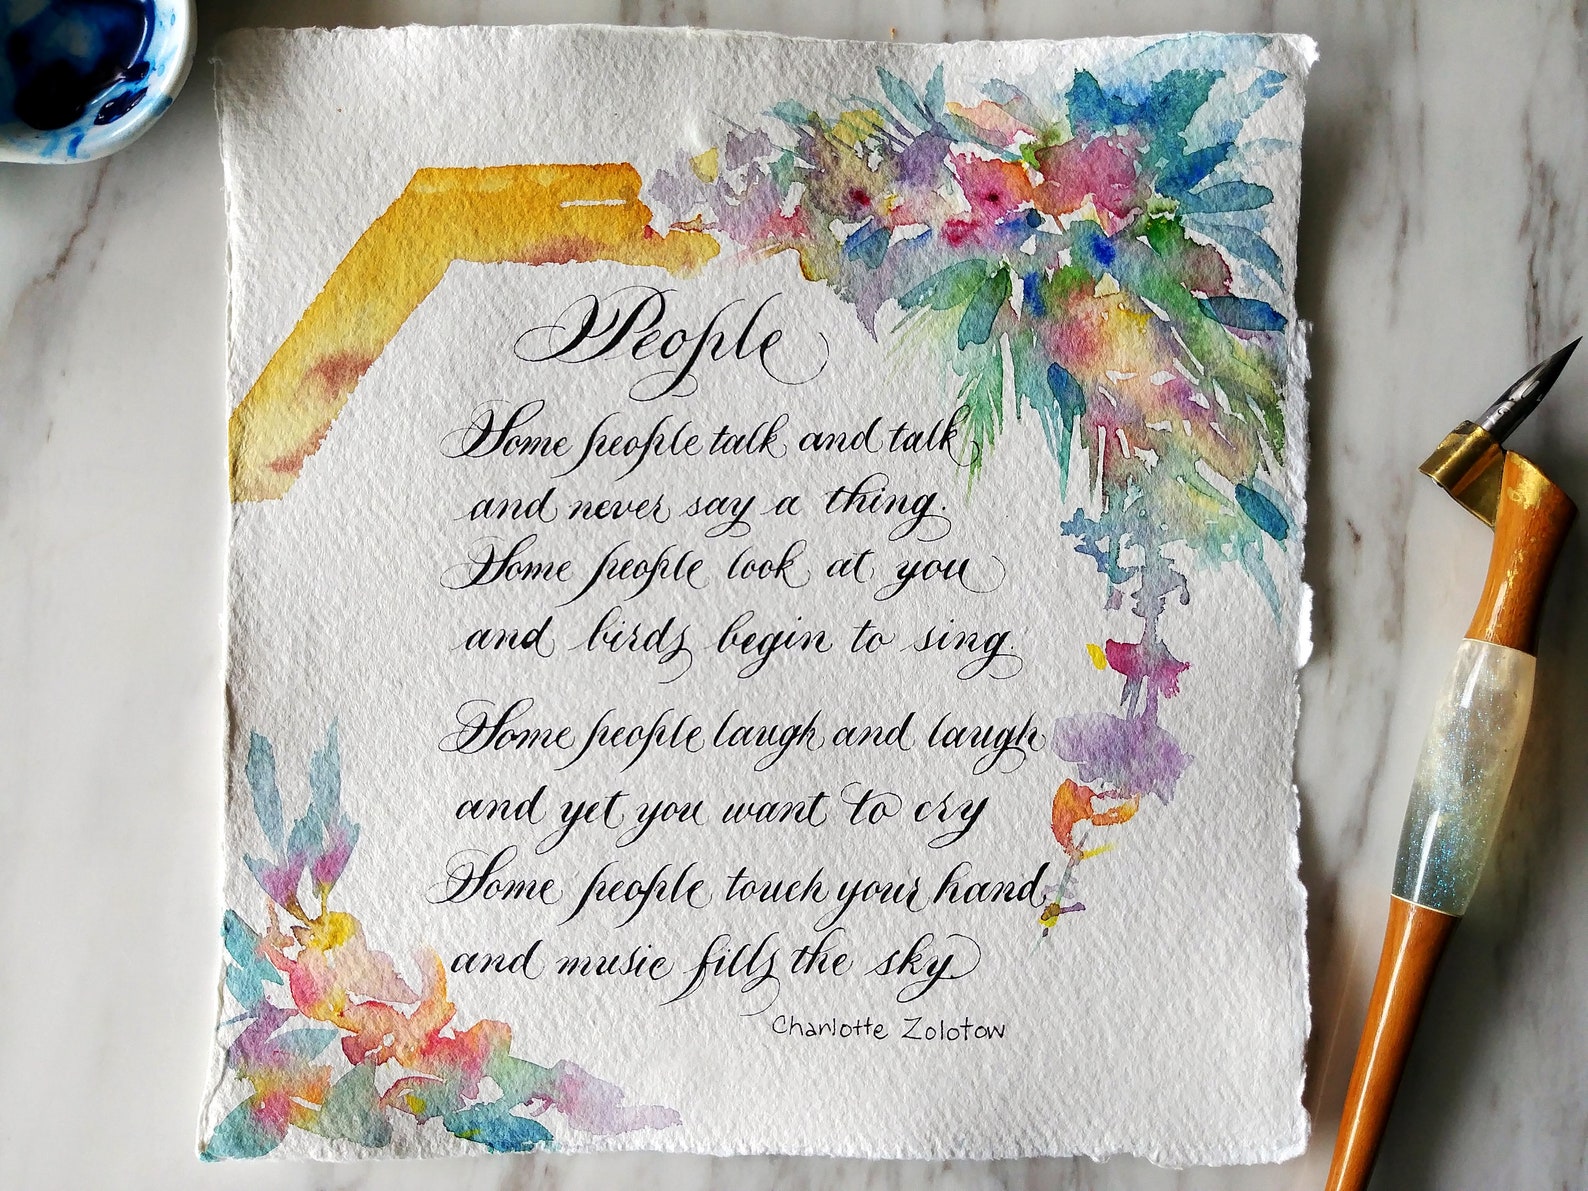 People
Some people talk and talk
and never say a thing.
Some people look at you
and birds begin to sing.
Some people laugh and laugh
and yet you want to cry
Some people touch your hand
and music fills the sky.
Charlotte Zolotow